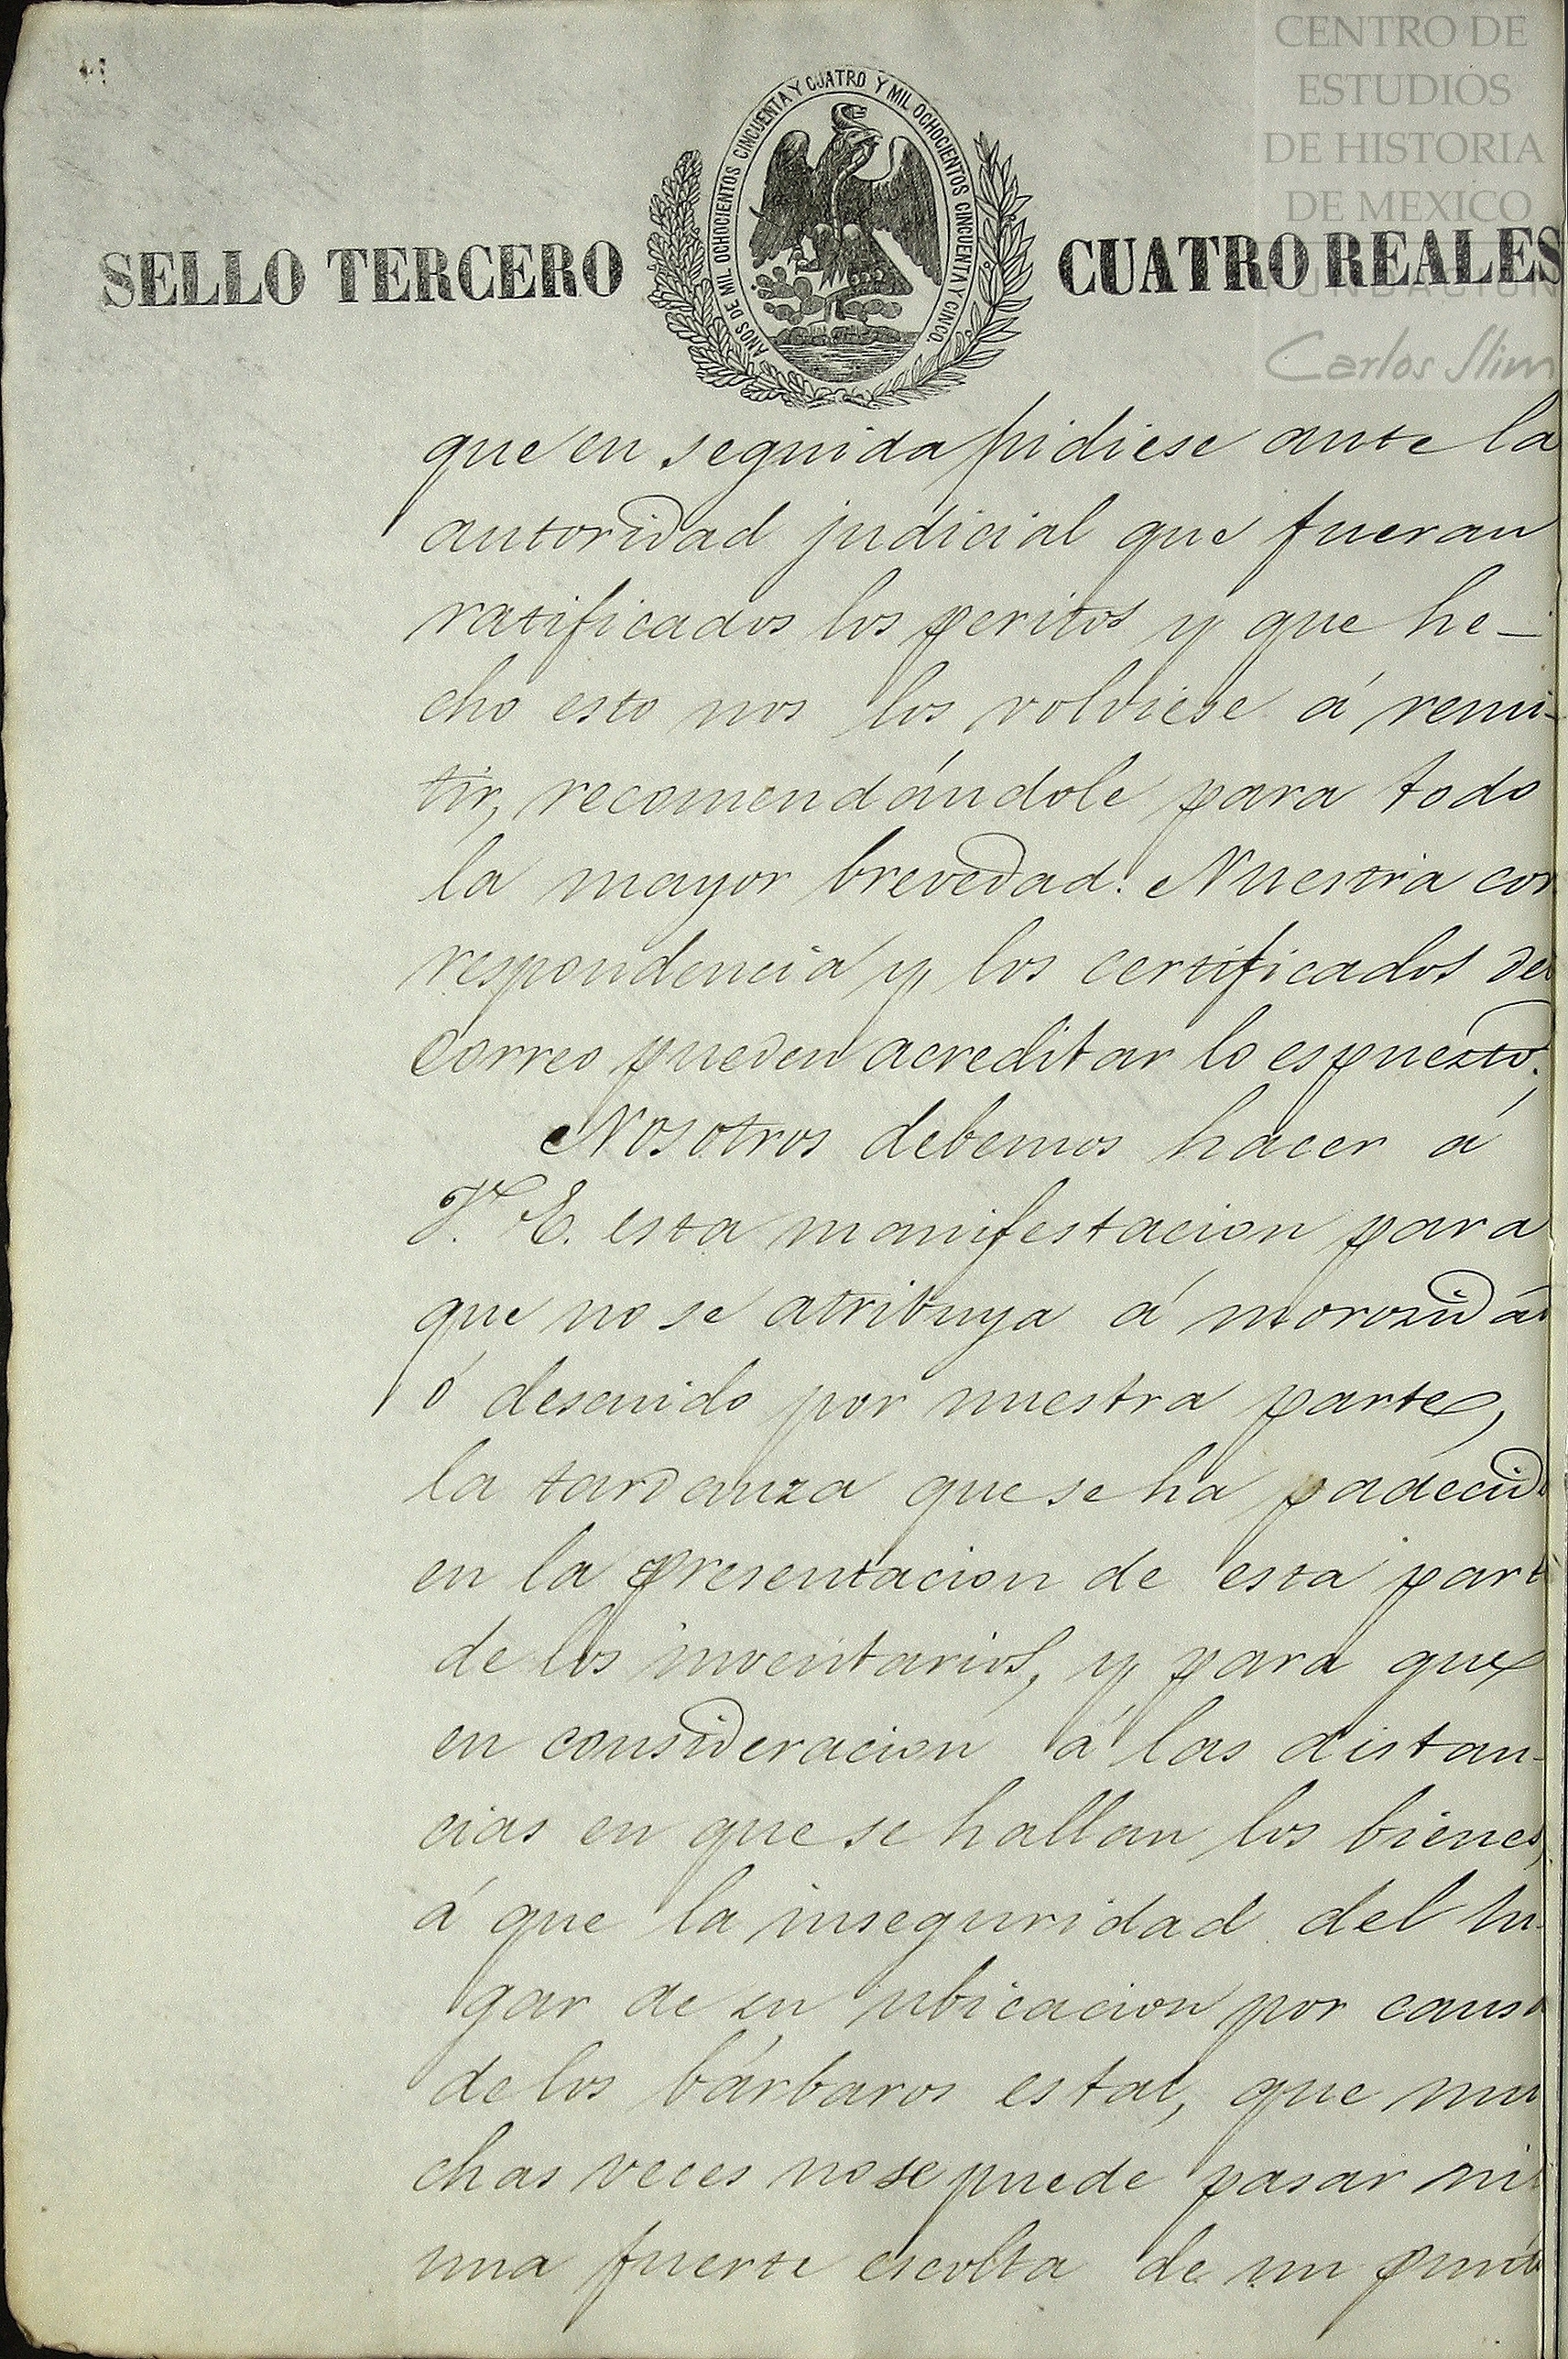 CENTRO DE
ESTUDIOS
DE HISTORIA
DE MEXICO
FUNDACION
Carlos Slim
AÑOS DE MIL OCHOCIENTOS CINCUENTA Y CUATRO Y MIL OCHOCIENTOS CINCUENTA Y CINCO.
SELLO TERCERO CUATRO REALES
que en seguida pidiese ante la
autoridad judicial que fueran
ratificados los peritos y que he-
cho esto nos los volviese á remi-
tir, recomendándole para todo
la mayor brevedad. Nuestra cor
respondencia y los certificados del
correo pueden acreditar lo espuesto.
Nosotros debemos hacer á
V. E. esta manifestacion para
que no se atribuya á morozida
ó descuido por nuestra parte,
la tardanza que se ha padecid
en la presentacion de esta part
de los inventarios, y para que
en consideracion á las distan-
cias en que se hallan los bienes,
á que la inseguridad del lu-
gar de su ubicacion por causa
de los bárbaros es tal, que mu
chas veces no se puede pasar ni
una fuerte escolta de un punto